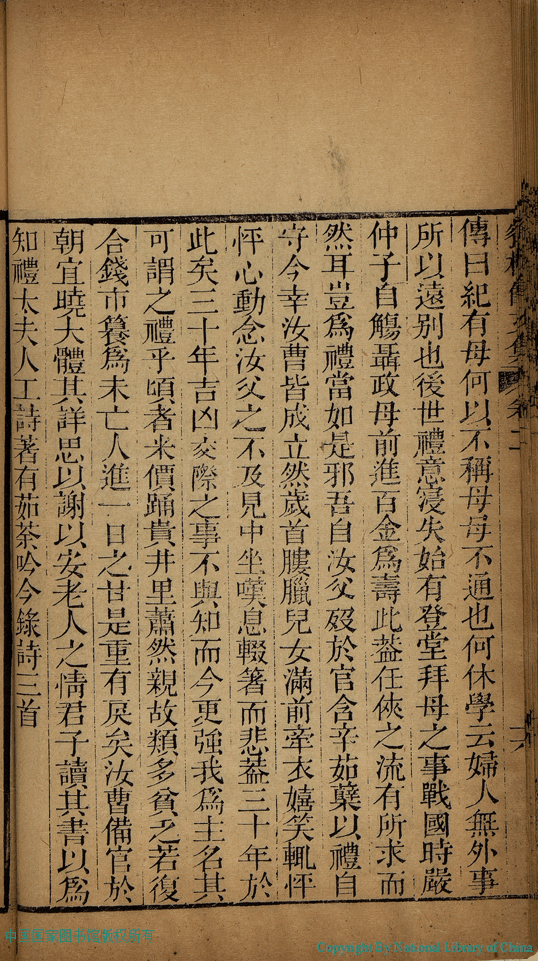 傳曰紀有母何以不稱母母不通也何休學云婦人無外事
所以遠别也後世禮意寖失始有登堂拜母之事戰國時嚴
仲子自觴聶政母前進百金爲壽此葢任俠之流有所求而
然耳豈爲禮當如是邪吾自汝父歿於官含辛茹蘖以禮自
守今幸汝曹皆成立然歲首膢臘兒女滿前牽衣嬉笑輒怦
怦心動念汝父之不及見中坐嘆息輟箸而悲葢三十年於
此矣三十年吉凶交際之事不與知而今更強我爲主名其
可謂之禮乎頃者米價踊貴井里蕭然親故類多貧乏若復
合錢市餐爲未亡人進一日之甘是重有戾矣汝曹備官於
朝宜曉大體其詳思以謝以安老人之情君子讀其書以爲
知禮太夫人工詩著有茹荼吟今錄詩三首
中国国家图书馆版权所有
Copyright By National Library of China